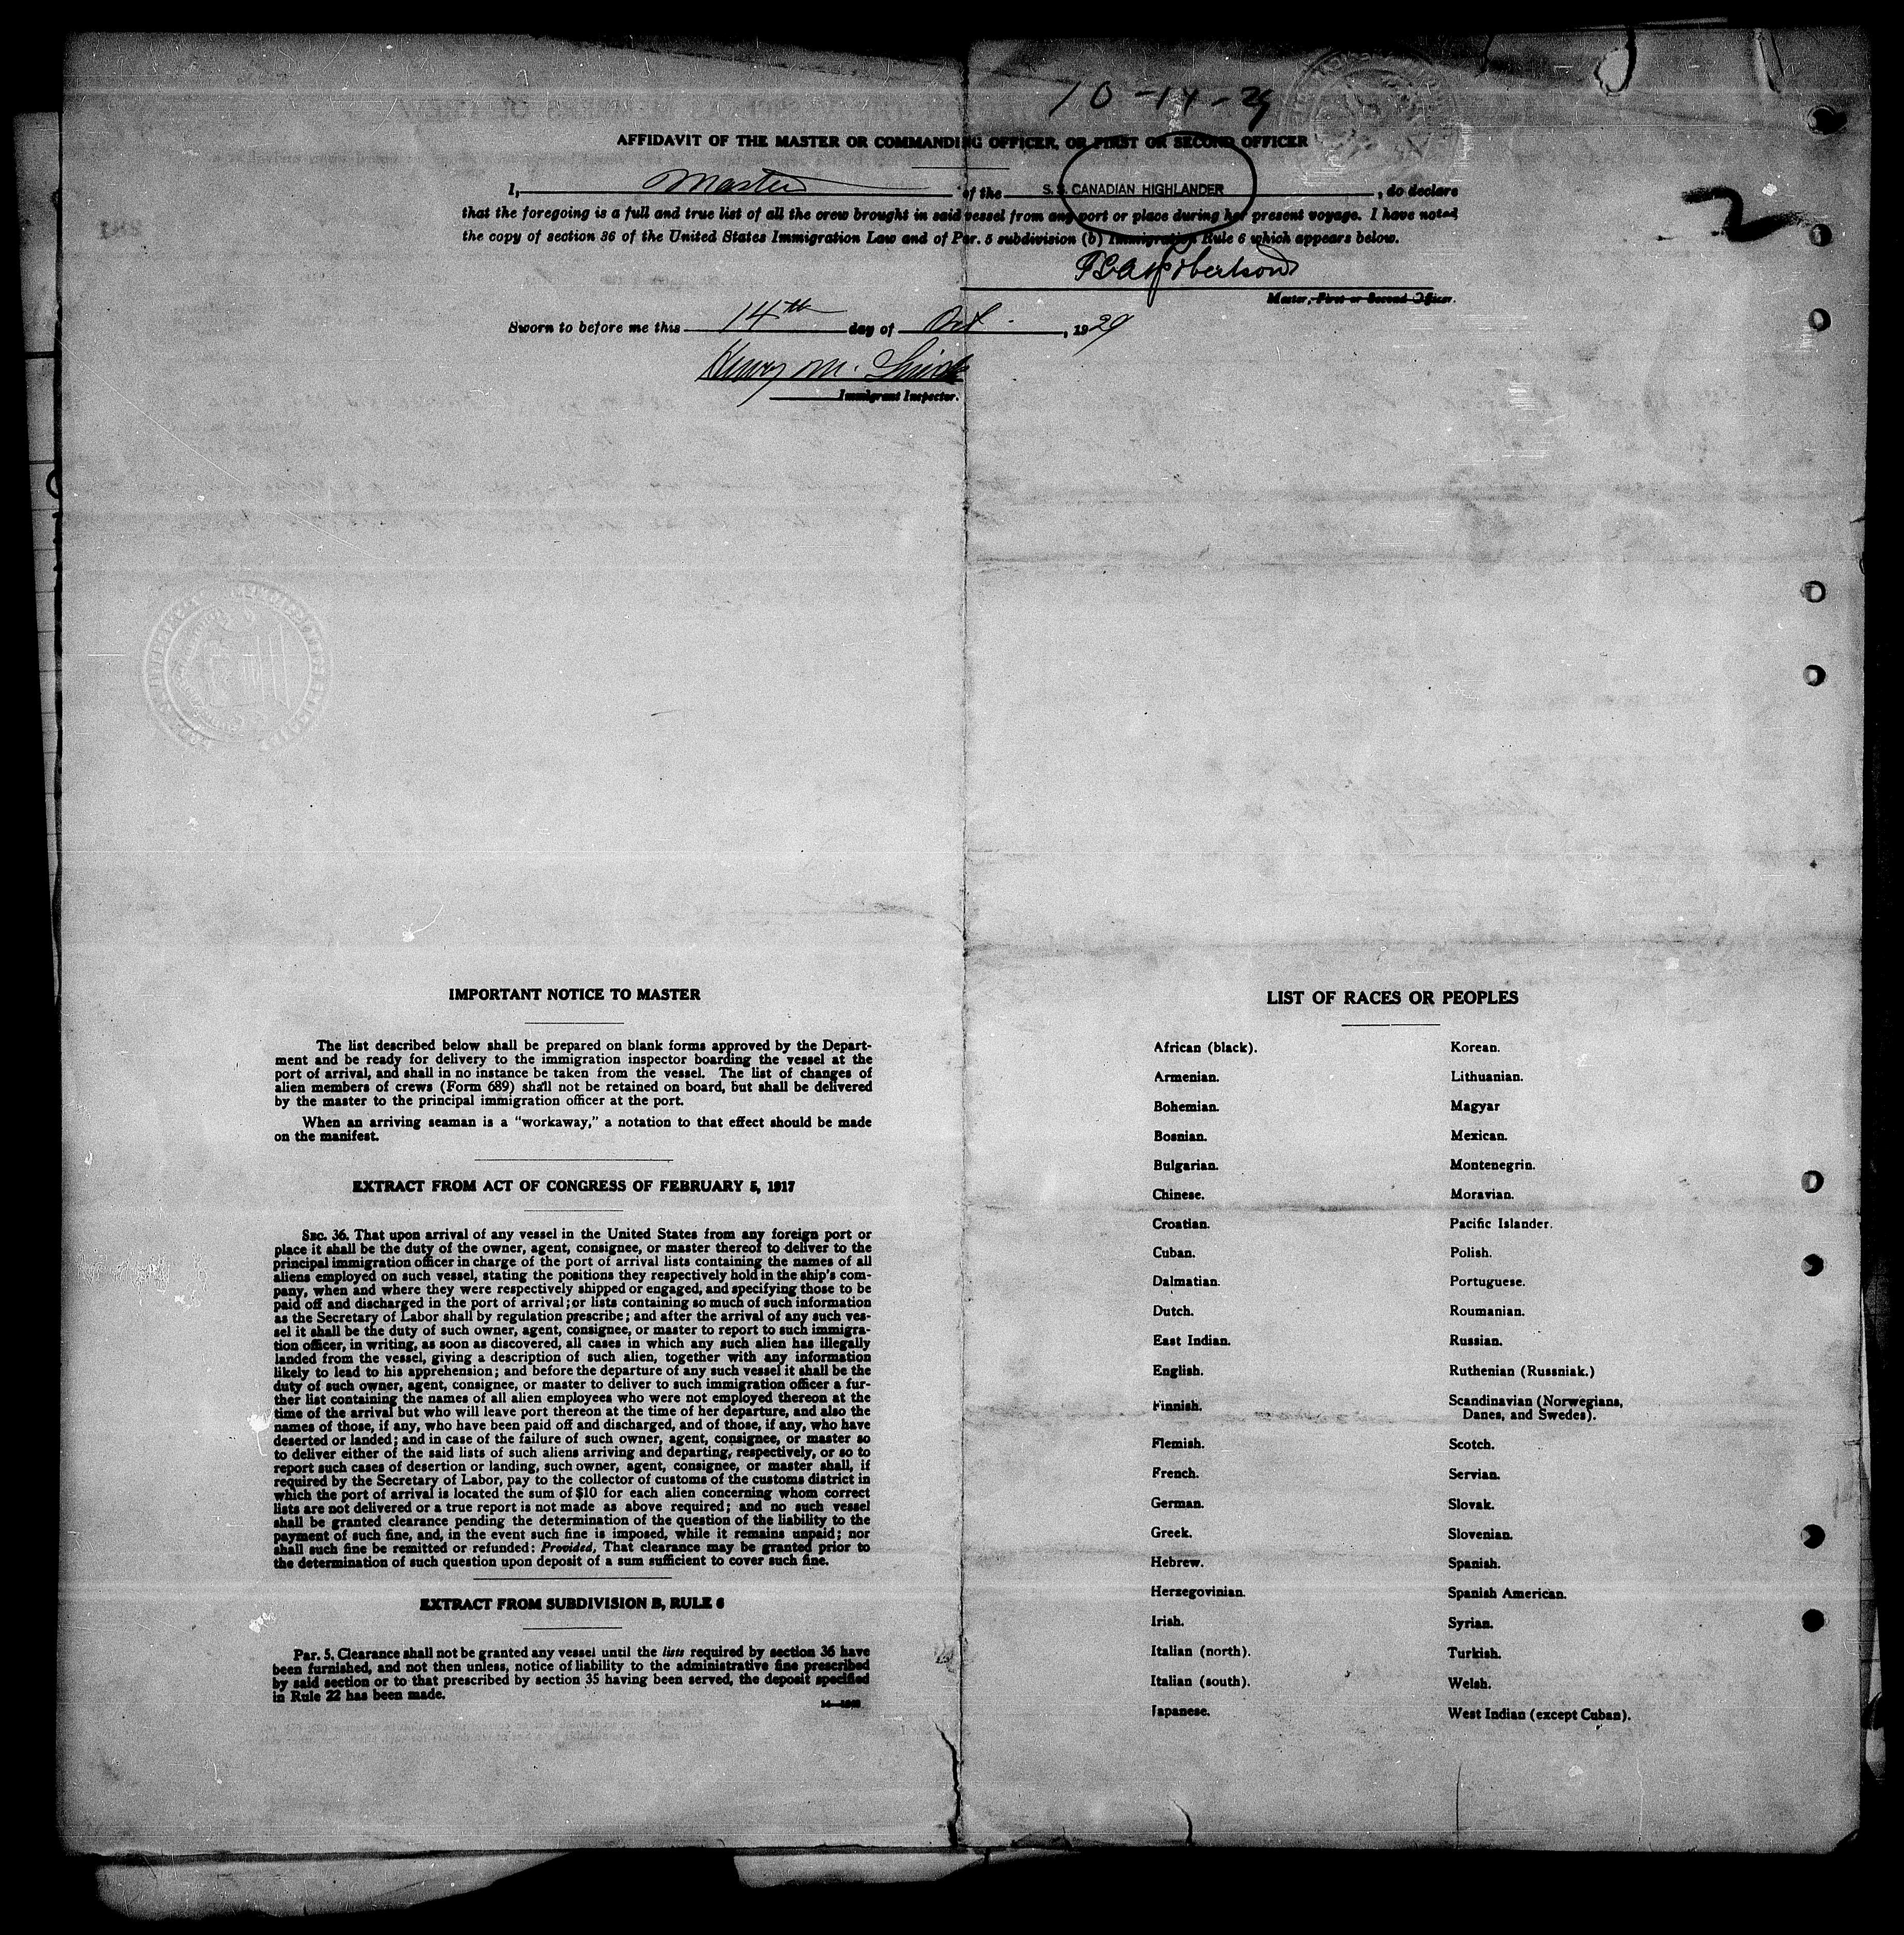 10-14-29
AFFIDAVIT OF THE MASTER OR COMMANDING OFFICER, OR FIRST OR SECOND OFFICER
I, Master of the S. S. CANADIAN HIGHLANDER, do declare
that the foregoing is a full and true list of all the crew brought in said vessel from any port or place during her present voyage. I have noted
the copy of section 36 of the United States Immigration Law and of Par. 5 subdivision (b) Immigration Rule 6 which appears below.
2
Robertson
Master, First or Second Officer.
Sworn to before me this 14th day of Oct., 1929
Henry M.
Immigrant Inspector.
IMPORTANT NOTICE TO MASTER
The list described below shall be prepared on blank forms approved by the Depart-
ment and be ready for delivery to the immigration inspector boarding the vessel at the
port of arrival, and shall in no instance be taken from the vessel. The list of changes of
alien members of crews (Form 689) shall not be retained on board, but shall be delivered
by the master to the principal immigration officer at the port.
When an arriving seaman is a "workaway," a notation to that effect should be made
on the manifest.
EXTRACT FROM ACT OF CONGRESS OF FEBRUARY 5, 1917
SEC. 36. That upon arrival of any vessel in the United States from any foreign port or
place it shall be the duty of the owner, agent, consignee, or master thereof to deliver to the
principal immigration officer in charge of the port of arrival lists containing the names of all
aliens employed on such vessel, stating the positions they respectively hold in the ship's com-
pany, when and where they were respectively shipped or engaged, and specifying those to be
paid off and discharged in the port of arrival; or lists containing so much of such information
as the Secretary of Labor shall by regulation prescribe; and after the arrival of any such ves-
sel it shall be the duty of such owner, agent, consignee, or master to report to such immigra-
tion officer, in writing, as soon as discovered, all cases in which any such alien has illegally
landed from the vessel, giving a description of such alien, together with any information
likely to lead to his apprehension; and before the departure of any such vessel it shall be the
duty of such owner, agent, consignee, or master to deliver to such immigration officer a fur-
ther list containing the names of all alien employees who were not employed thereon at the
time of the arrival but who will leave port thereon at the time of her departure, and also the
names of those, if any, who have been paid off and discharged, and of those, if any, who have
deserted or landed; and in case of the failure of such owner, agent, consignee, or master so
to deliver either of the said lists of such aliens arriving and departing, respectively, or so to
report such cases of desertion or landing, such owner, agent, consignee, or master shall, if
required by the Secretary of Labor, pay to the collector of customs of the customs district in
which the port of arrival is located the sum of $10 for each alien concerning whom correct
lists are not delivered or a true report is not made as above required; and no such vessel
shall be granted clearance pending the determination of the question of the liability to the
payment of such fine, and, in the event such fine is imposed, while it remains unpaid; nor
shall such fine be remitted or refunded: Provided, That clearance may be granted prior to
the determination of such question upon deposit of a sum sufficient to cover such fine.
EXTRACT FROM SUBDIVISION B, RULE 6
Par. 5. Clearance shall not be granted any vessel until the lists required by section 36 have
been furnished, and not then unless, notice of liability to the administrative fine prescribed
by said section or to that prescribed by section 35 having been served, the deposit specified
in Rule 22 has been made.
LIST OF RACES OR PEOPLES
African (black).
Armenian.
Bohemian.
Bosnian.
Bulgarian.
Chinese.
Croatian.
Cuban.
Dalmatian.
Dutch.
East Indian.
English.
Finnish.
Flemish.
French.
German.
Greek.
Hebrew.
Herzegovinian.
Irish.
Italian (north).
Italian (south).
Japanese.
Korean.
Lithuanian.
Magyar
Mexican.
Montenegrin.
Moravian.
Pacific Islander.
Polish.
Portuguese.
Roumanian.
Russian.
Ruthenian (Russniak.)
Scandinavian (Norwegians,
Danes, and Swedes).
Scotch.
Servian.
Slovak.
Slovenian.
Spanish.
Spanish American.
Syrian.
Turkish.
Welsh.
West Indian (except Cuban).